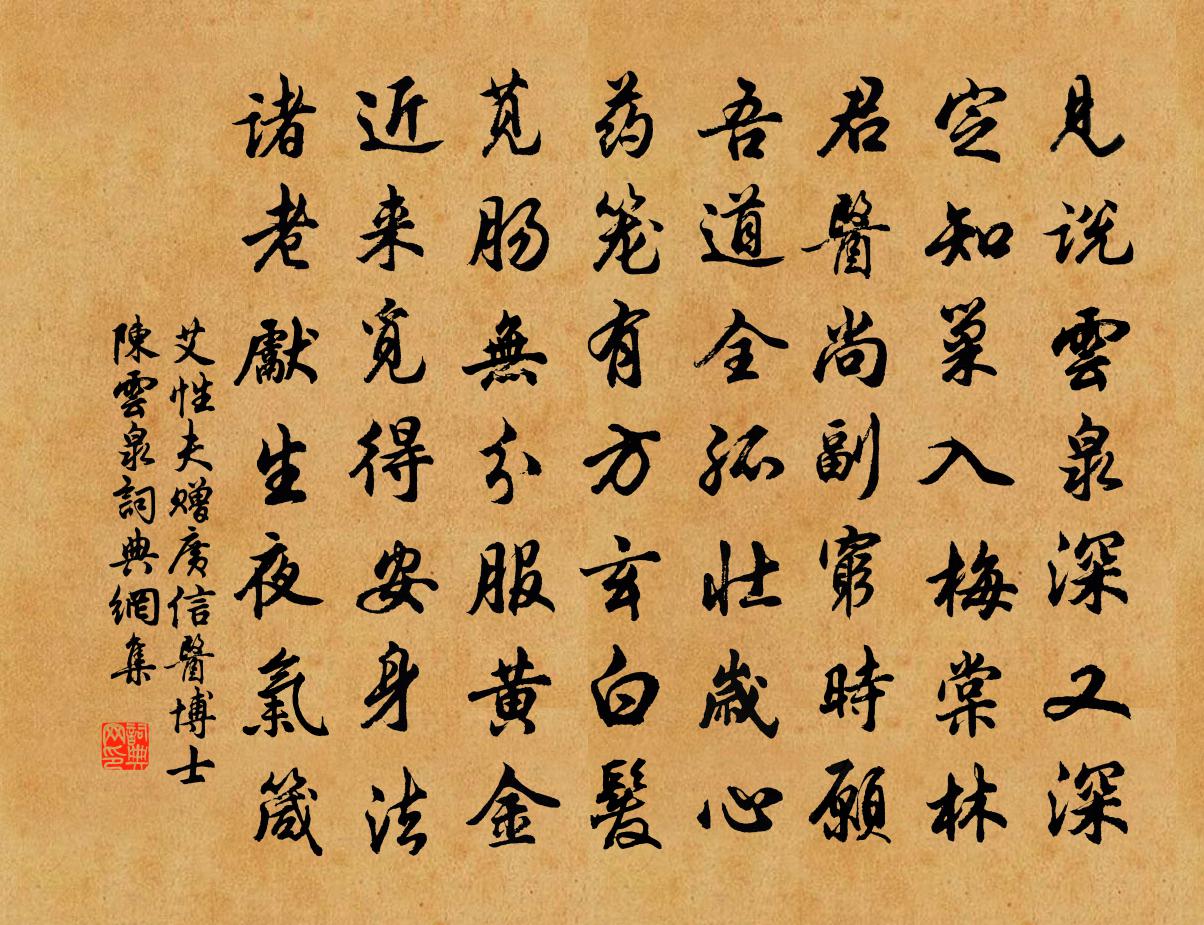 見説雲泉深又深
定知巢入梅棠林
君醫尚副窮時願
吾道全孤壯歲心
药笼有方玄白髮
莧肠無分服黃金
近来覓得安身法
諸老獻生夜氣箴
艾性夫赠廣信醫博士
陳雲泉詞典網集
詞典网印